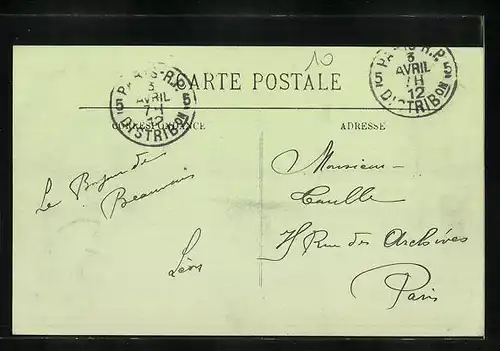 10
CARTE POSTALE
PARIS-R.P.
5 3 5
AVRIL
7H
12
DISTRIBON
PARIS-R.P.
5 3 5
AVRIL
7H
12
DISTRIBON
CORRESPONDANCE
ADRESSE
Le Bonjour de
Beauvais
Léon
Monsieur
Caulle
Rue des Archives
Paris